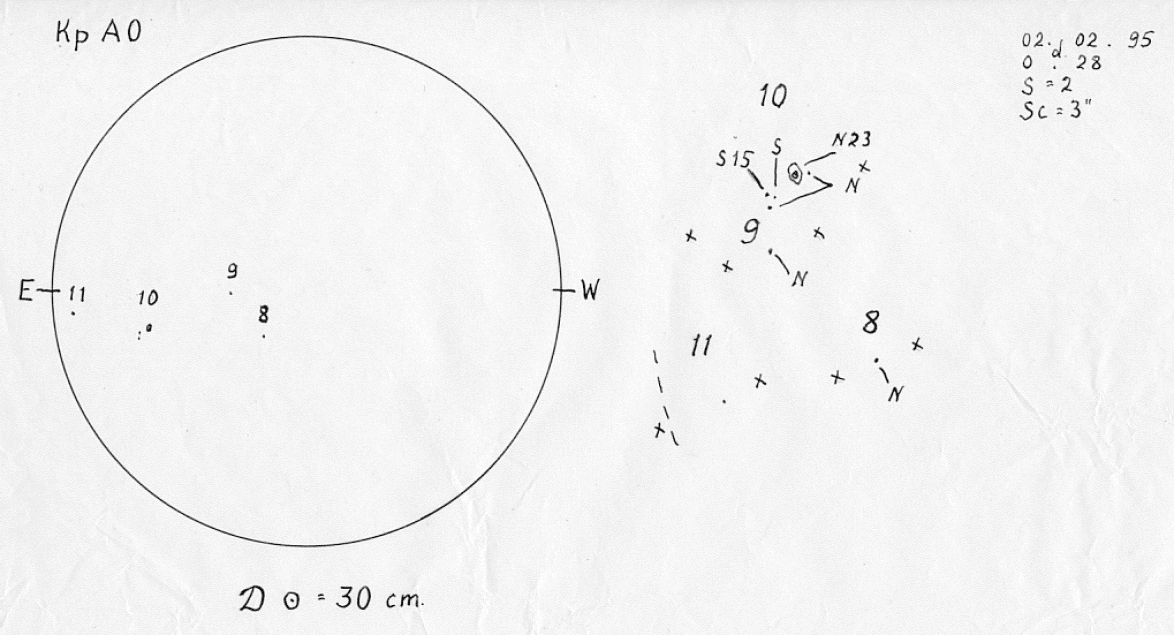 Кр АО
02. 02. 95
0 d. 28
S = 2
Sc = 3"
10
S15
S
N23
N
9
N
E
11
10
9
8
W
11
8
N
D ⊙ = 30 cm.